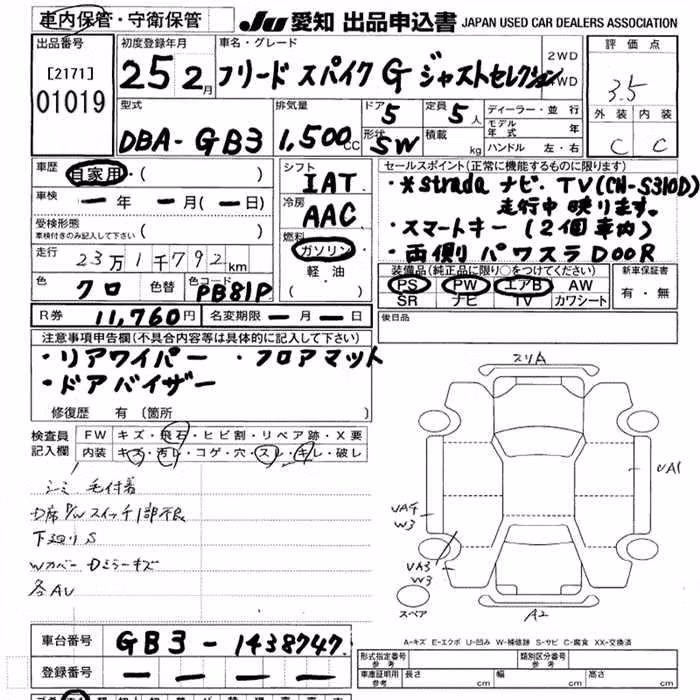 車内保管・守衛保管 JU 愛知 出品申込書 JAPAN USED CAR DEALERS ASSOCIATION
出品番号 初度登録年月 車名・グレード 評価点
[2171] 25 2月 フリード スパイク G ジャストセレクション 2WD 4WD 3.5
01019 型式 排気量 ドア 定員 ディーラー・並行 外装 内装
DBA-GB3 1,500cc 5 5人 モデル年式 年
形状 SW 積載 kg ハンドル 左・右 C C
車歴 自家用・( ) シフト IAT セールスポイント(正常に機能するものに限ります)
車検 ー年 ー月(ー日) 冷房 AAC ・*strada ナビ・TV(CN-S310D)
走行中映ります。
受検形態 車検付きのみ記入して下さい ( ) 燃料 ・スマートキー(2個車内)
走行 23万1千792km ガソリン・ ・両側パワスラDOOR
色 クロ 色替 色コード PB81P 軽油 ( )
装備品(純正品に限り○をつけてください) 新車保証書
PS PW エアB AW 有・無
SR ナビ TV カワシート
R券 11,760円 名変期限 ー月ー日 後日品
注意事項申告欄(不具合内容等は具体的に記入して下さい)
・リアワイパー ・フロアマット
・ドアバイザー
修復歴 有(箇所 )
検査員記入欄 FW キズ・飛石・ヒビ割・リペア跡・X要
内装 キズ・汚レ・コゲ・穴・スレ・キレ・破レ
シミ 毛付着
D席P/Wスイッチ1部不良
下廻りS
Wカバー Dミラーキズ
各AU
スリA
UA1
UA4
W3
UA3
W3
スペア
A2
A-キズ E-エクボ U-凹み W-補修跡 S-サビ C-腐食 XX-交換済
車台番号 GB3-1438747.
登録番号 ー ー ー ー
形式指定番号 参考 類別区分番号 参考
車庫証明用 参考 長さ cm 幅 cm 高さ cm